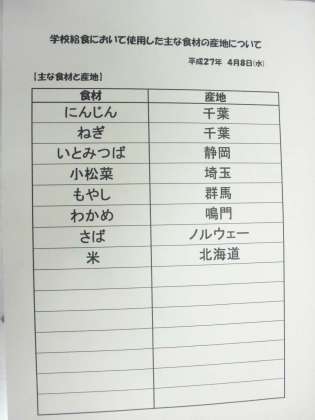 学校給食において使用した主な食材の産地について
平成27年 4月8日(水)
【主な食材と産地】
食材 産地
にんじん 千葉
ねぎ 千葉
いとみつば 静岡
小松菜 埼玉
もやし 群馬
わかめ 鳴門
さば ノルウェー
米 北海道